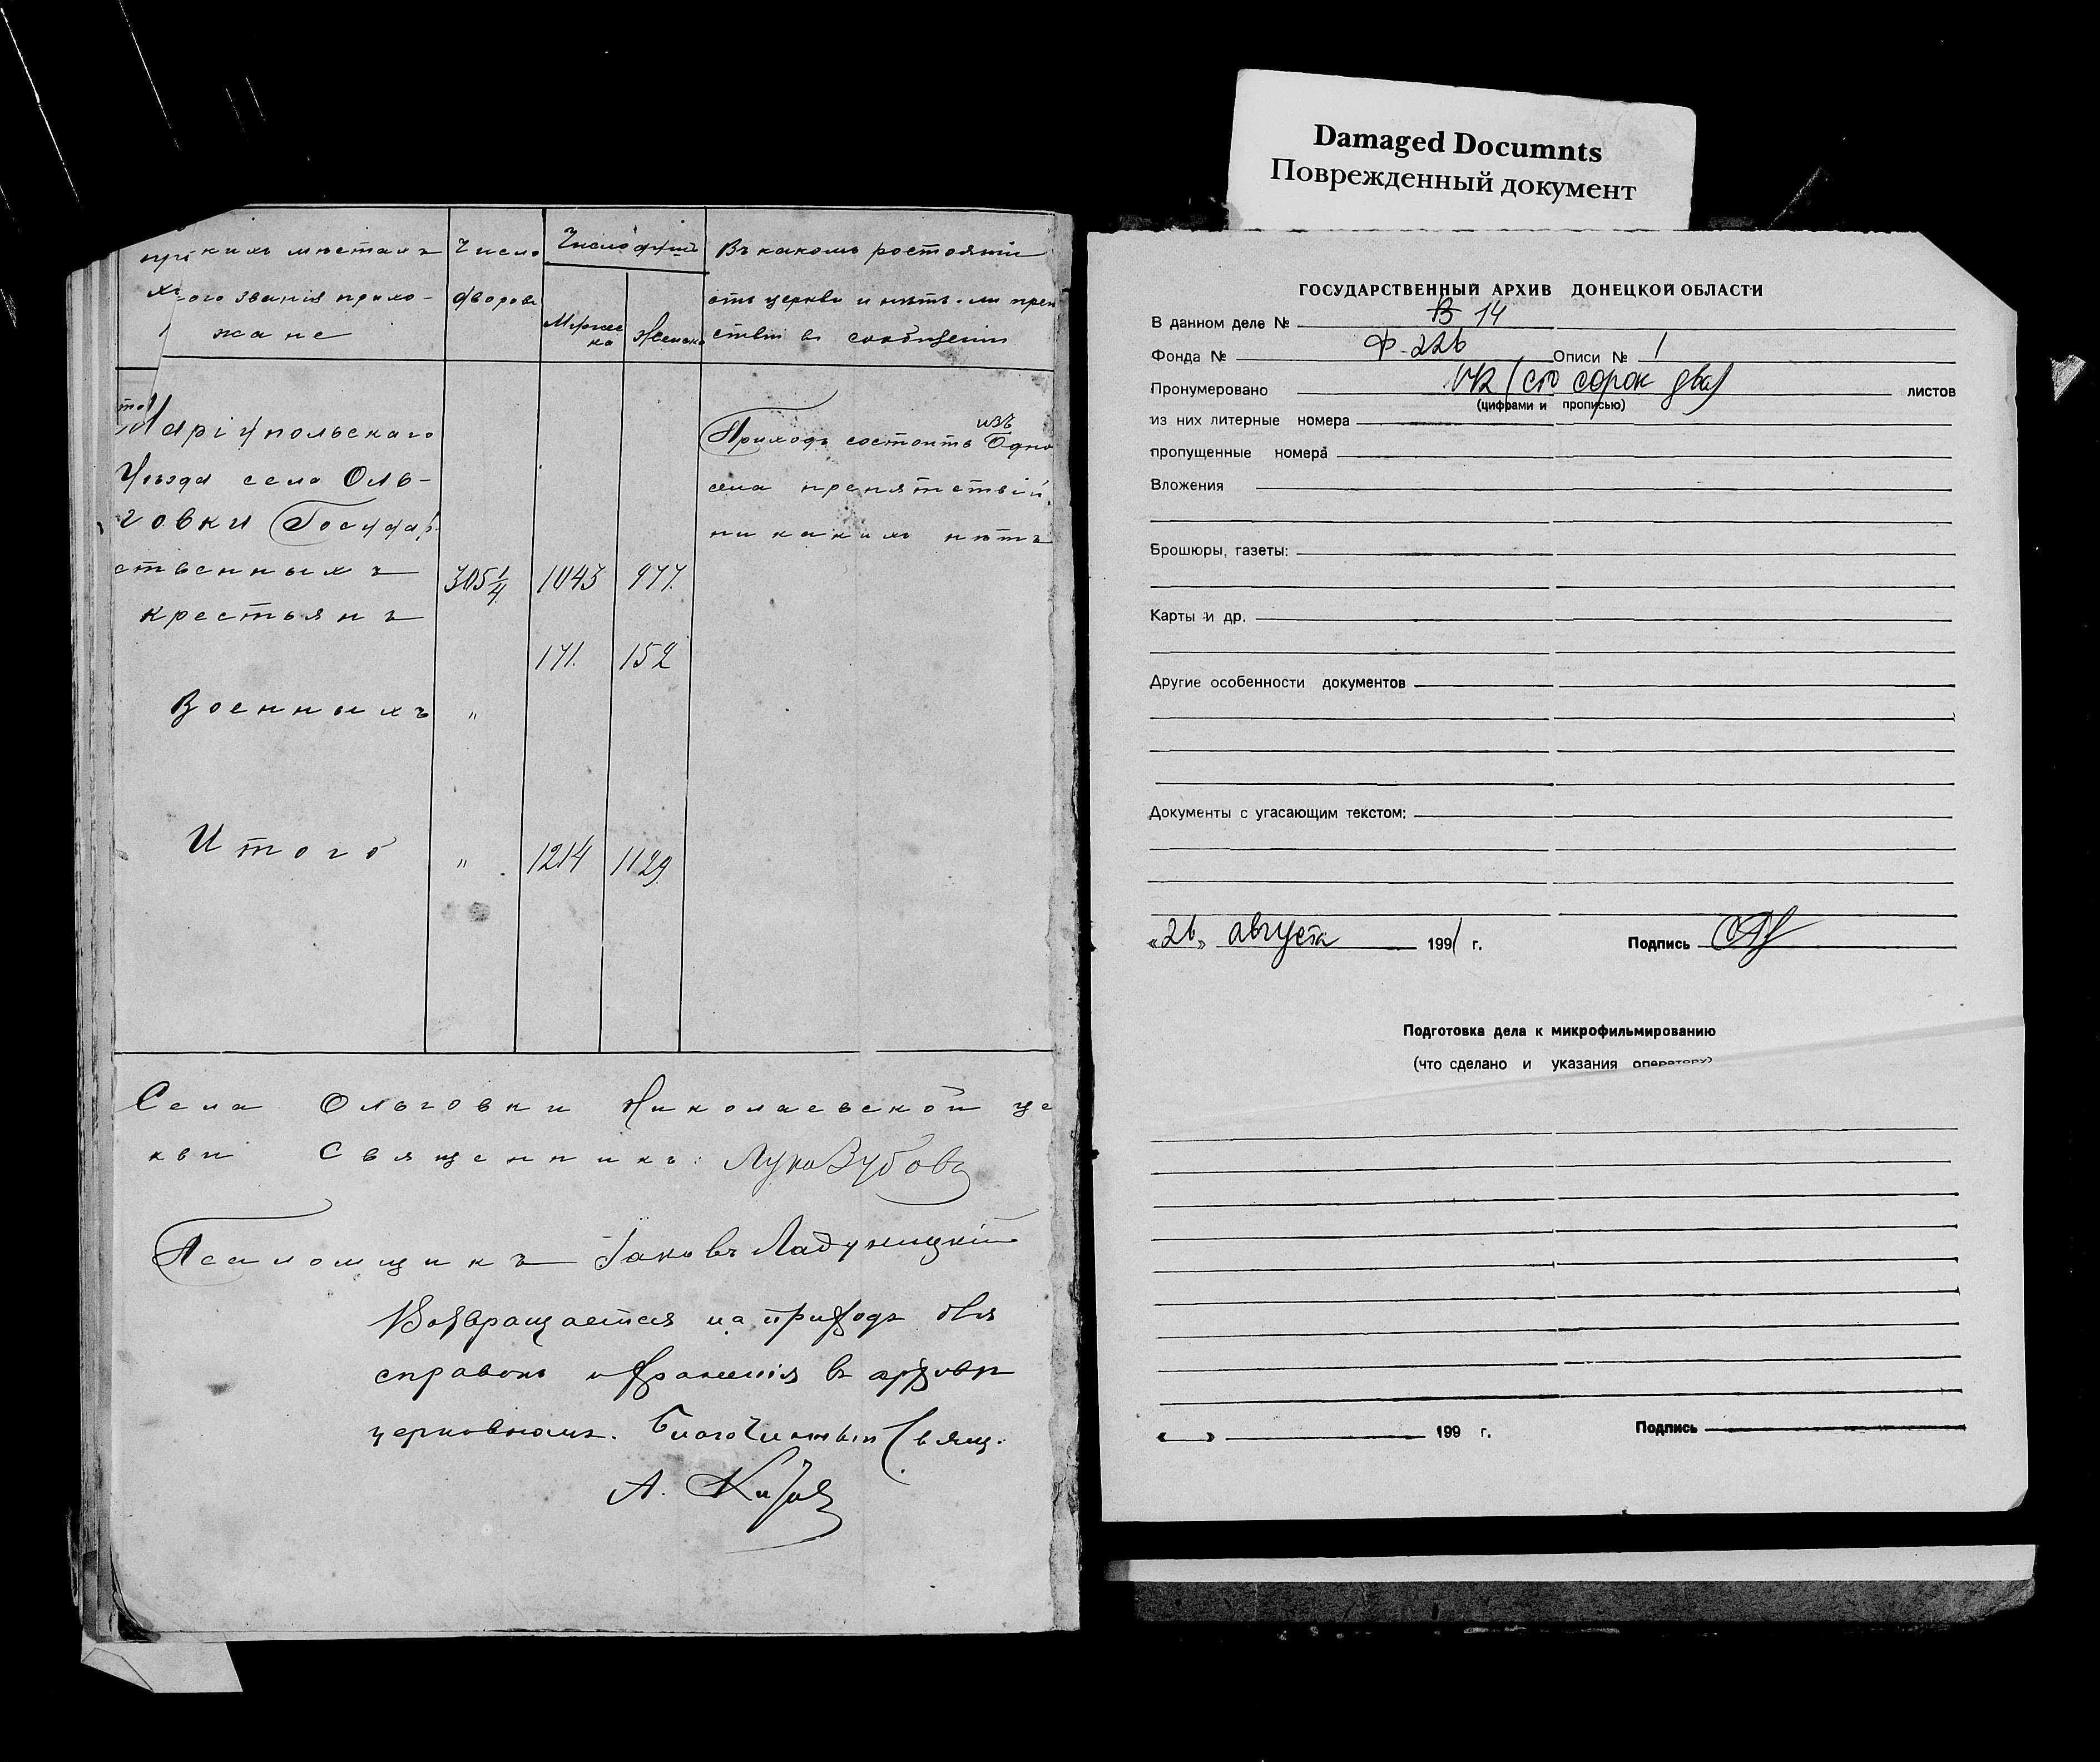 Damaged Documnts
Поврежденный документ
кихъ мѣстахъ
ого званія прихо-
жане
Число
дворовъ
Число душъ
Мужес
ка
Женска
Въ какомъ розстояніи
отъ церкви и нѣтъ-ли преп
ствій въ сообщеніи
Маріупольскаго
Уѣзда села Оль-
говки Государ
ственныхъ
крестьянъ
305 1/4 1043 977.
171. 152
Военныхъ "
Итого " 1214 1129.
изъ
Приходъ состоитъ Одно
села препятствій
никакихъ нѣтъ
Села Ольговки Николаевской це
кви Священникъ: Лука Зубовъ
Псаломщикъ Іаковъ Ладухицкій
Возвращается на приходъ для
справокъ и храненія въ архивѣ
церковномъ. Благочинный Свящ.
А.
ГОСУДАРСТВЕННЫЙ АРХИВ ДОНЕЦКОЙ ОБЛАСТИ
В данном деле № 14
Фонда № Ф-226 Описи № 1
Пронумеровано 142 (сто сорок два) листов
(цифрами и прописью)
из них литерные номера
пропущенные номера
Вложения
Брошюры, газеты:
Карты и др.
Другие особенности документов
Документы с угасающим текстом:
«26» августа 1991 г. Подпись
Подготовка дела к микрофильмированию
(что сделано и указания оператору)
« » 199 г. Подпись